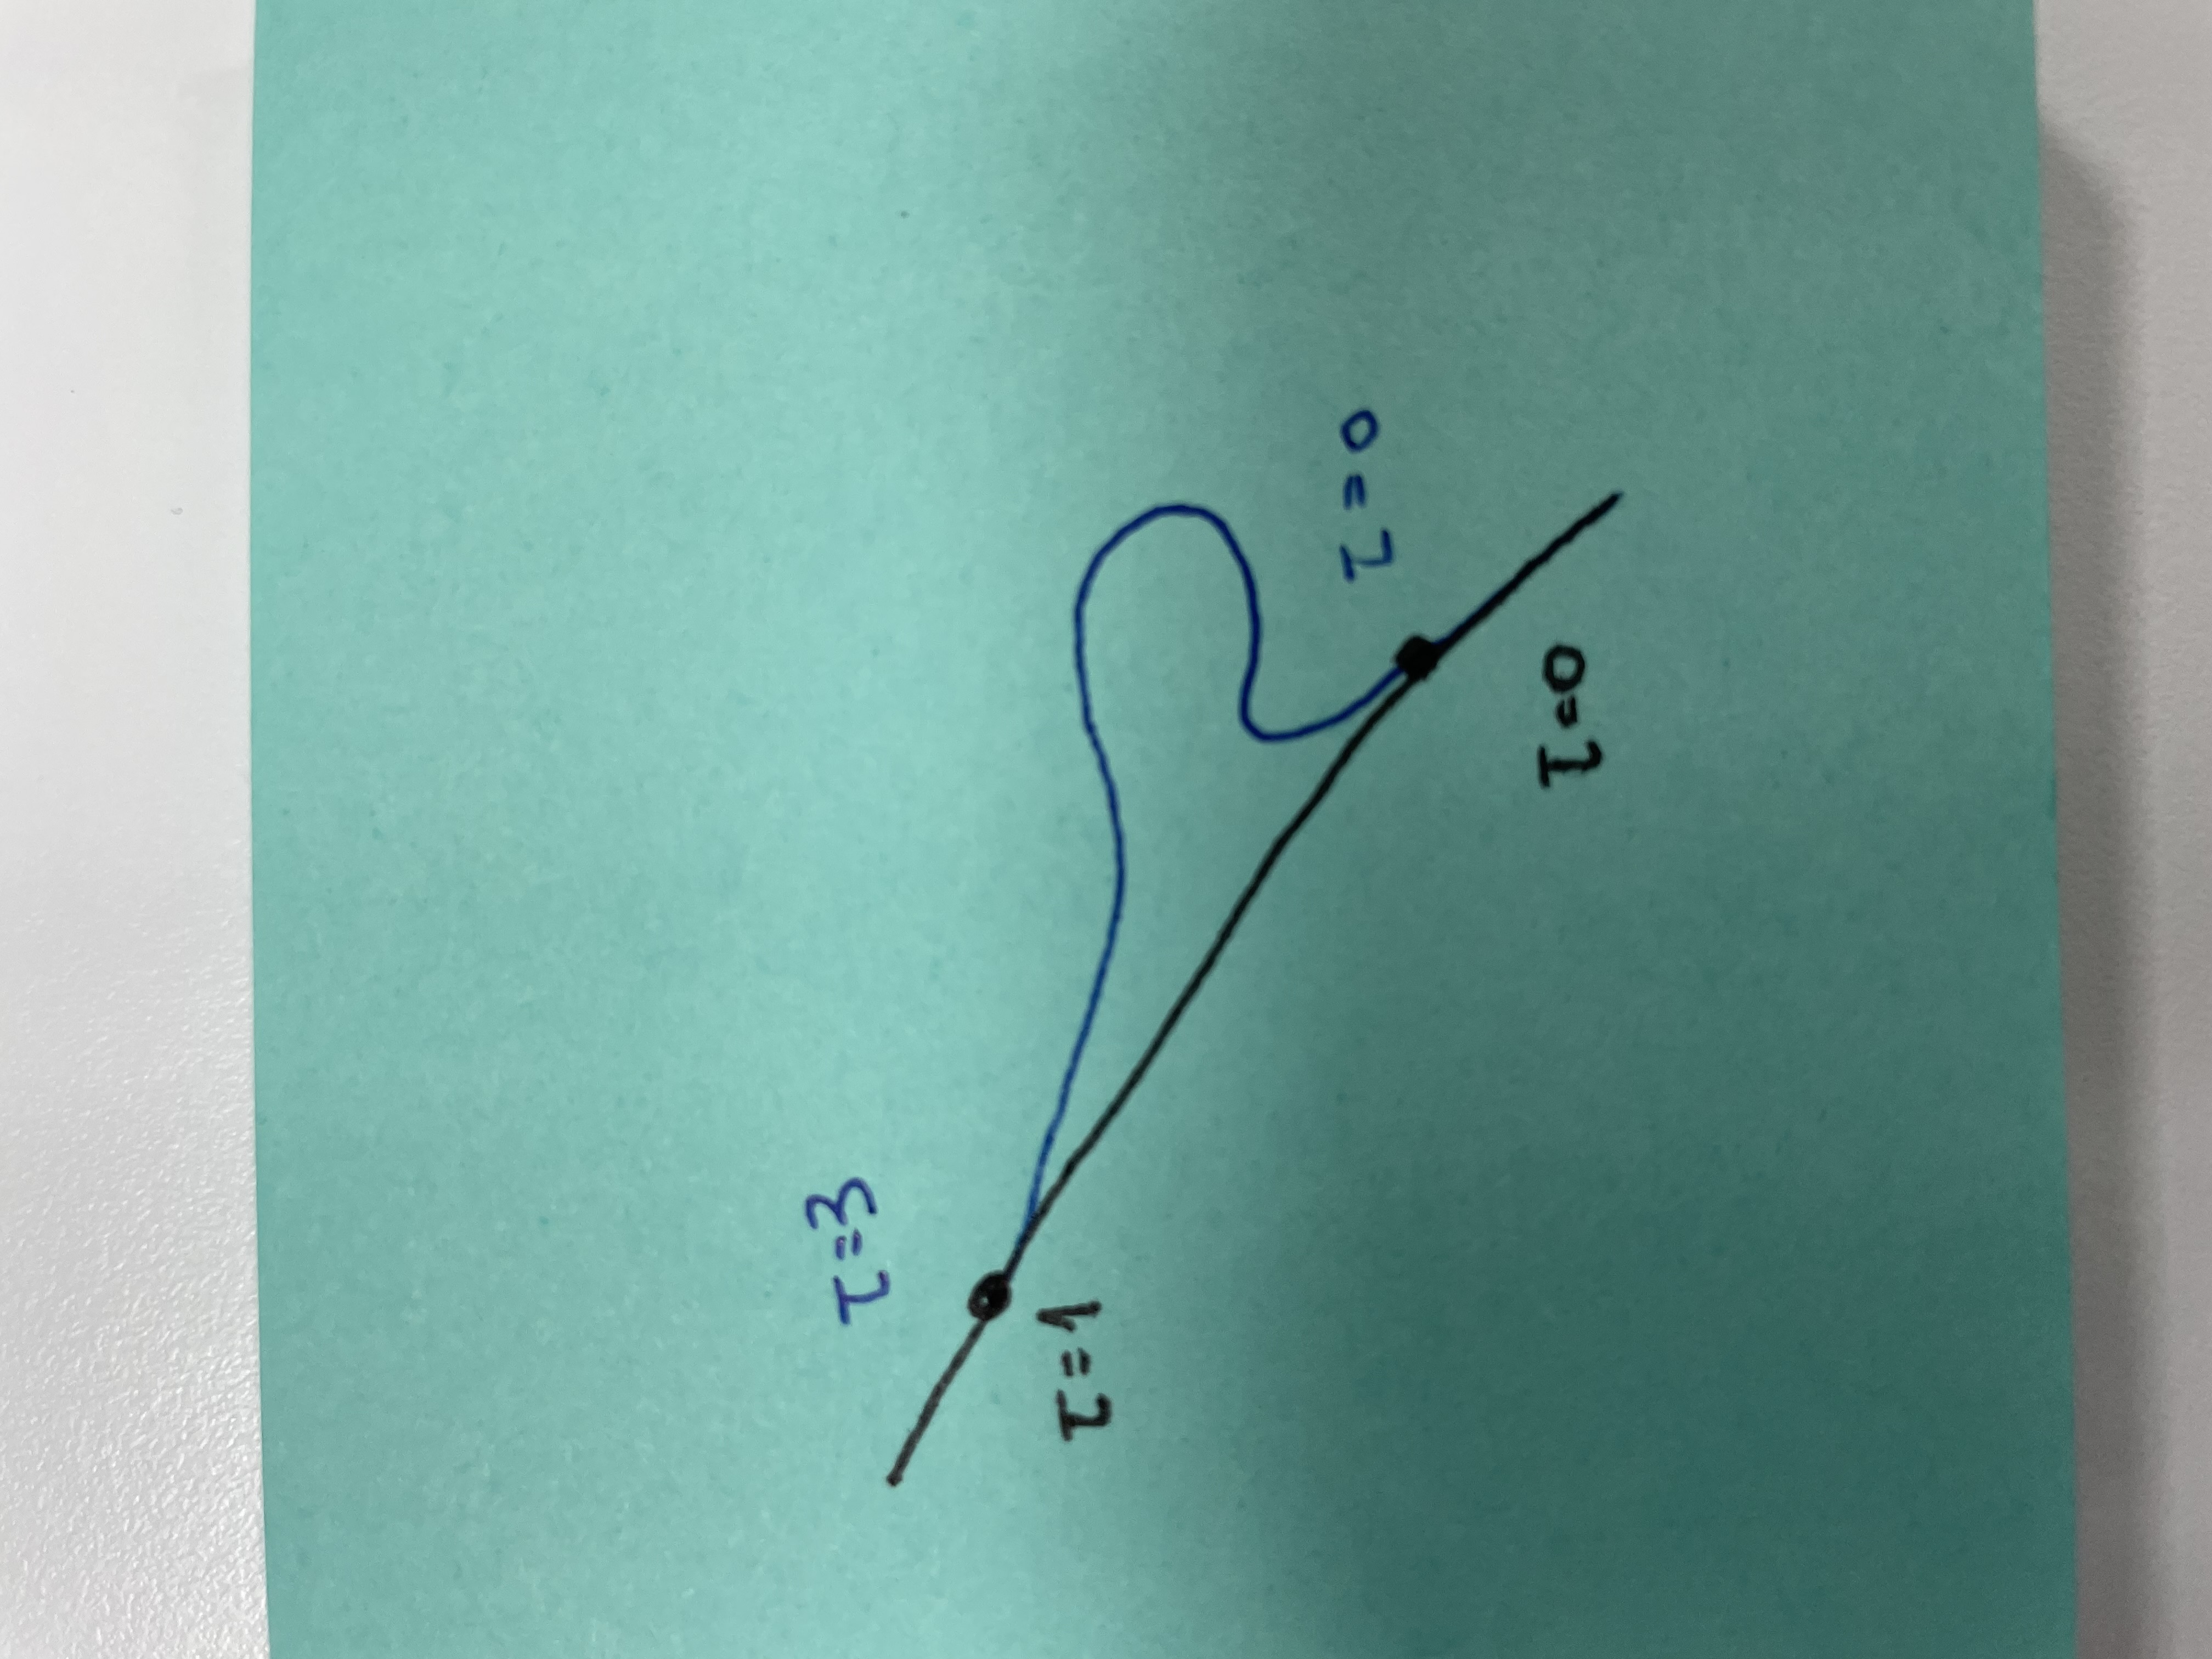 τ=3
τ=1
τ=0
τ=0